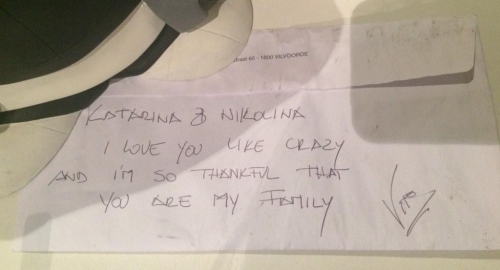 straat 66 - 1800 VILVOORDE
KATARINA & NIKOLINA
I LOVE YOU LIKE CRAZY
AND I'M SO THANKFUL THAT
YOU ARE MY FAMILY